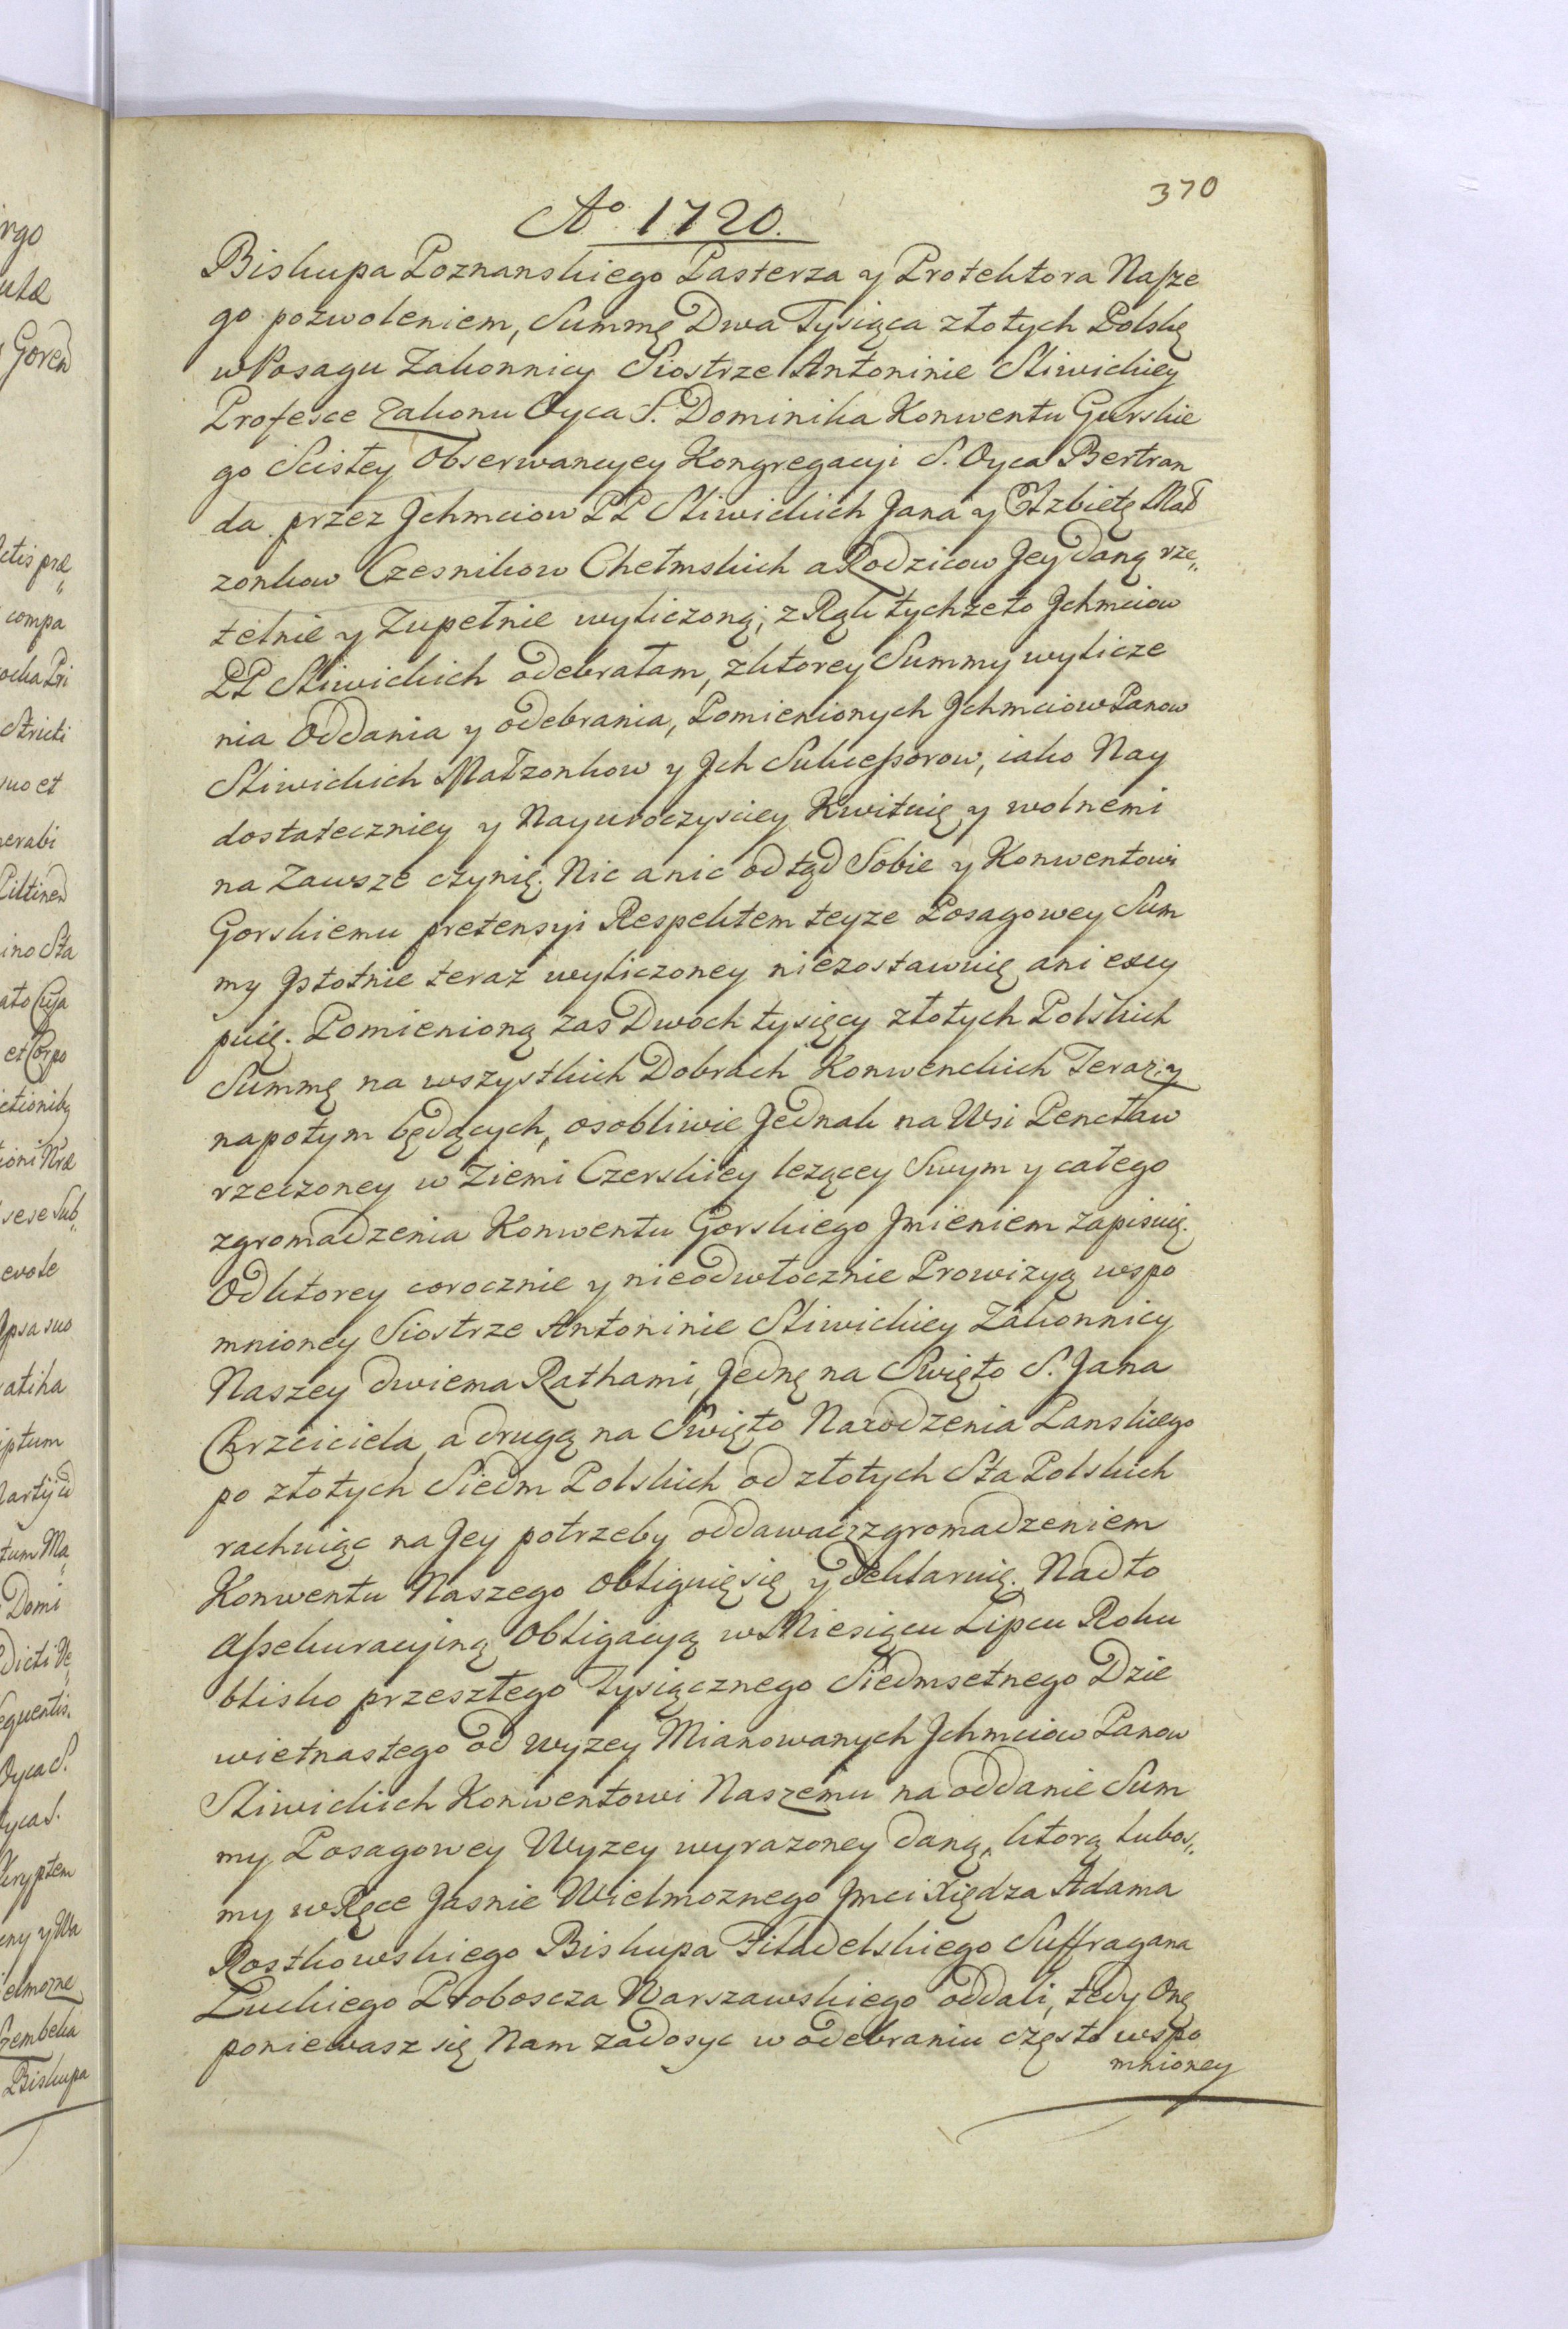 370
Aº 1720.
Biskupa Poznanskiego Pasterza y Protektora Nasze
go pozwoleniem, Summę Dwa Tysiąca złotych Polskę
w Posagu Zakonnicy Siostrze Antoninie Sliwickiey
Profesce Zakonu Oyca S. Dominika Konwentu Gurskie
go Scisłey Obserwancyey Kongregacyi S. Oyca Bertran
da przez Jchmciow PP Sliwickich Jana y Elzbietę Mał
zonkow Czesnikow Chełmskich a Rodzicow Jey daną rze„
telnie y Zupełnie wyliczoną; z Rąk tychze to Jchmciow
PP Sliwickich odebrałam, zktorey Summy wylicze
nia Oddania y odebrania, Pomienionych Jchmciow Panow
Sliwickich Małzonkow y Jch Sukcessorow, iako Nay
dostateczniey y Nayuroczysciey Kwituię y wolnemi
na Zawsze czynię. Nic a nic odtąd Sobie y Konwentowi
Gorskiemu pretensyi Respektem teyze Posagowey Sum
my Jstotnie teraz wyliczoney niezostawuię ani excy
puię. Pomienioną zas Dwoch tysięcy złotych Polskich
Summę na wszystkich Dobrach Konwenckich Teraz y
napotym będących, osobliwie Jednak na Wsi Pencław
rzeczoney w Ziemi Czerskiey lezącey Swym y całego
zgromadzenia Konwentu Gorskiego Jmieniem zapisuię.
Od ktorey corocznie y nieodwłocznie Prowizyą wspo
mnioney Siostrze Antoninie Sliwickiey Zakonnicy
Naszey dwiema Rathami, Jednę na Swięto S. Jana
Chrzciciela, a drugą na Swięto Narodzenia Panskiego
po złotych Siedm Polskich od złotych Sta Polskich
rachuiąc na Jey potrzeby oddawac zzgromadzeniem
Konwentu Naszego obliguię się y deklaruię. Nadto
Assekuracyiną Obligacyą w Miesiącu Lipcu Roku
blisko przeszłego Tysiącznego Siedmsetnego Dzie
wietnastego od wyzey Mianowanych Jchmciow Panow
Sliwickich Konwentowi Naszemu na oddanie Sum
my Posagowey Wyzey wyrazoney daną, ktorą lubos„
my w Ręce Jasnie Wielmoznego Jmci Xiędza Adama
Rostkowskiego Biskupa Filadelskiego Suffragana
Luckiego Proboscza Warszawskiego oddali, tedy Onę
poniewasz się Nam zadosyc w odebraniu często wspo
mnioney